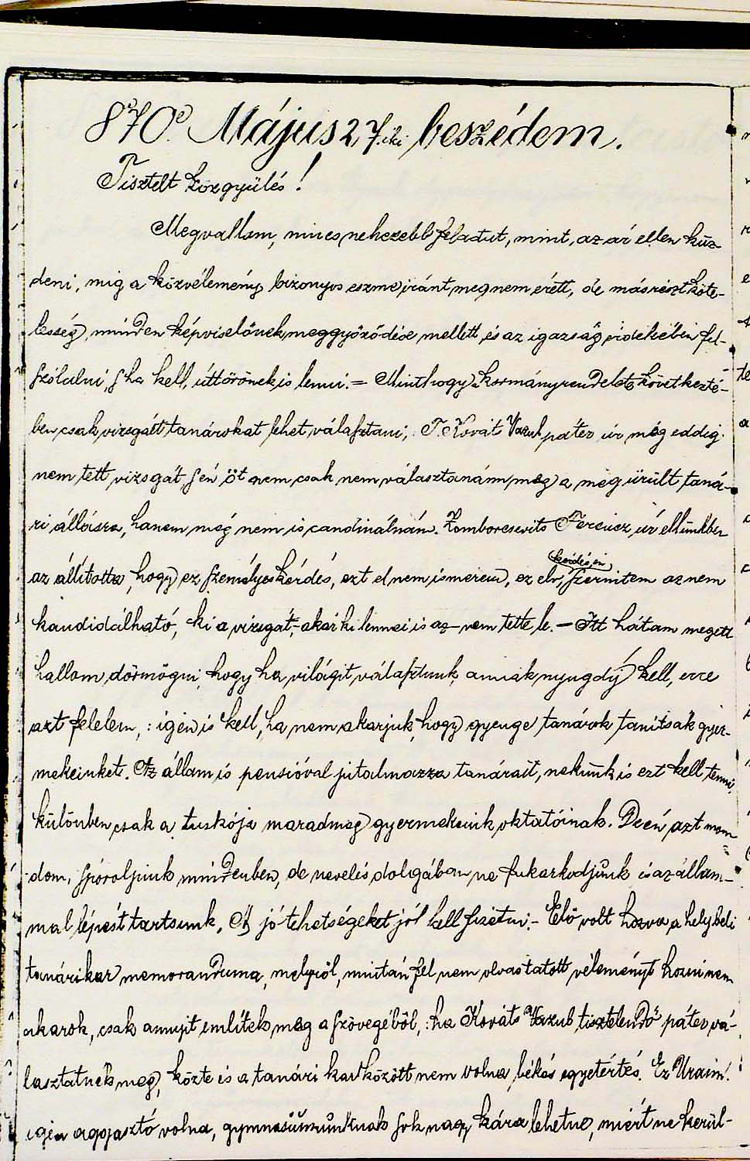 870. Május 27.iki beszédem.
Tisztelt közgyülés!
Megvallom, nincs nehezebb feladat, mint, az ár ellen küz-
deni, mig a közvélemény bizonyos eszme iránt meg nem érett, de másrészt köte-
lesség, minden képviselőnek meggyőződése mellett és az igazság érdekében fel-
szólalni s ha kell, úttörőnek is lenni. = Minthogy kormányrendelet következté-
ben csak vizsgált tanárokat lehet választani, T. Kovát Vazul páter úr még eddig
nem tett vizsgát, s én őt nem csak nem választanám meg a meg ürült taná-
ri állásra, hanem még nem is candinálnám. Zomborcsevits Ferencz úr ellinkben
az állitotta, hogy ez személyes kérdés, ezt el nem ismerem, ez elv kérdés, szerintem az nem
kandidálható, ki a vizsgát, akárki lennei is az nem tette le. – Itt hátam megett
hallom dörmögni, hogy ha világit választunk, annak nyugdíj kell, erre
azt felelem, : igen is kell, ha nem akarjuk, hogy gyenge tanárok tanitsák gyer-
mekeinket. Az állam is pensióval jutalmazza tanárait, nekünk is ezt kell tenni,
különben csak a tuskója marad meg gyermekeink oktatóinak. De én azt mon
dom, spóroljunk mindenben, de nevelés dolgában ne fukarkodjunk is az állam-
mal lépést tartsunk. A jó tehetségeket jól kell fizetni. – Elő volt hozva a helybeli
tanárikar memoranduma, melyről, miután fel nem olvastatott véleményt hozni nem
akarok, csak annyit említek meg a szövegéből, : ha Kováts Vazub tisztelendő páter vá-
lasztatnék meg, közte is a tanári kar között nem volna békés egyetértés. Ez Uraim!
igen aggasztó volna, gymnasiumunknak sok nagy kára lehetne, miért ne kerül-